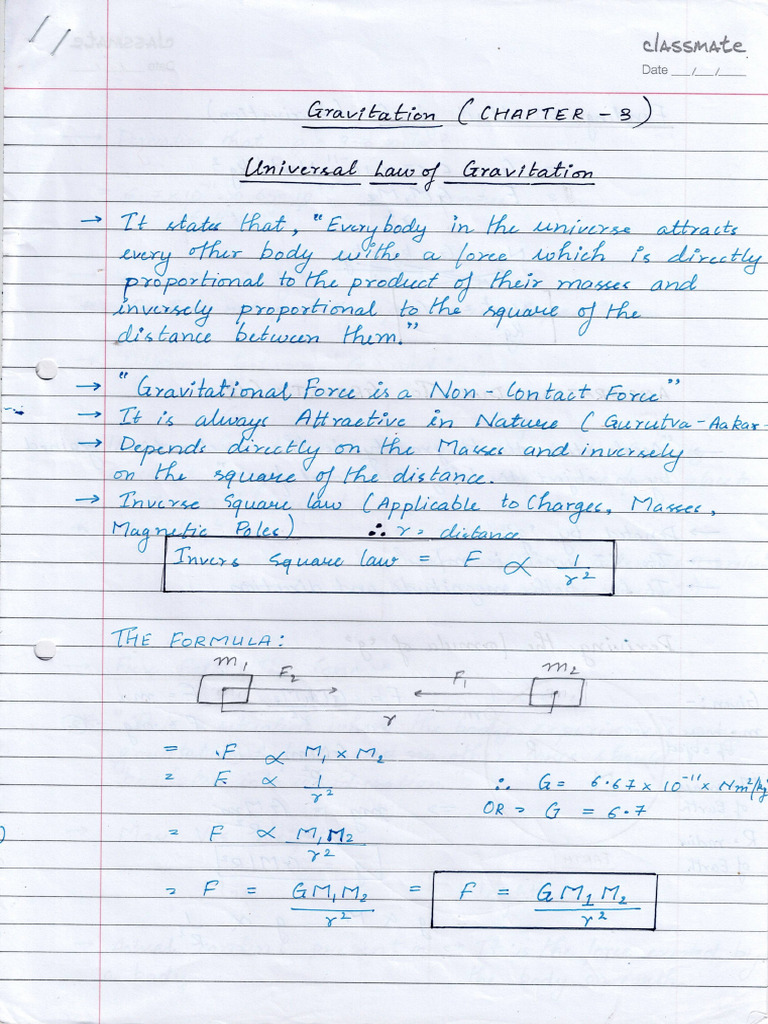 classmate
Date __/__/__
Gravitation (CHAPTER - 3)
Universal Law of Gravitation
→ It states that, "Everybody in the universe attracts
every other body withe a force which is directly
proportional to the product of their masses and
inversely proportional to the square of the
distance between them."
→ "Gravitational Force is a Non-Contact Force"
→ It is always Attractive in Nature (Gurutva-Aakar-
→ Depends directly on the Masses and inversely
on the square of the distance.
→ Inverse Square law (Applicable to Charges, Masses,
Magnetic Poles) ∴ r = distance
Invers square law = F ∝ 1/r²
THE FORMULA:
m₁ F₂ F₁ m₂
r
= F ∝ M₁ × M₂
= F ∝ 1/r² ∴ G = 6.67 × 10⁻¹¹ × Nm²/kg
OR = G = 6.7
= F ∝ M₁M₂/r²
= F = GM₁M₂/r² = F = GM₁M₂/r²